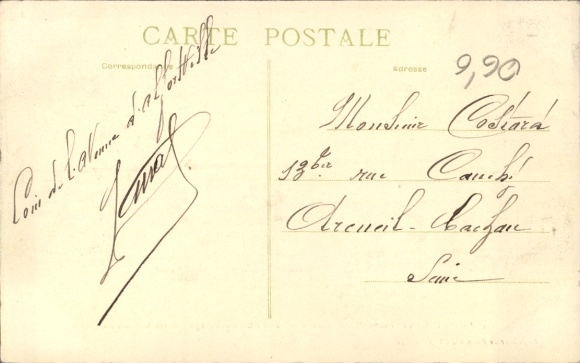 CARTE POSTALE
Correspondance
Adresse
9,90
Coin de l'Avenue d'Alfortville
Monsieur Costara
13 bis rue Cauchy
Arcueil-Cachan
Seine